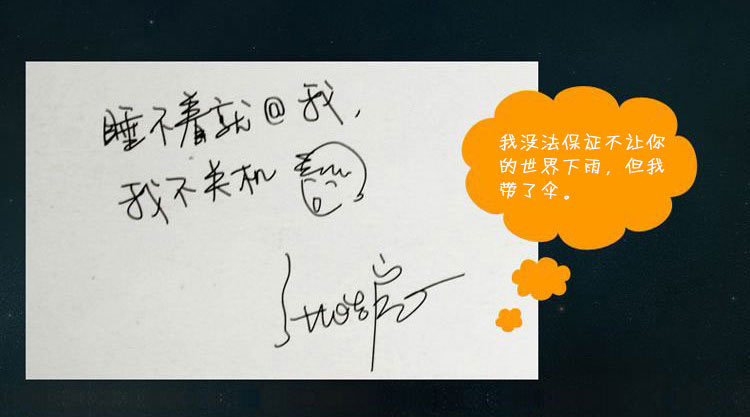 睡不着就@我,
我不关机
我没法保证不让你
的世界下雨，但我
带了伞。